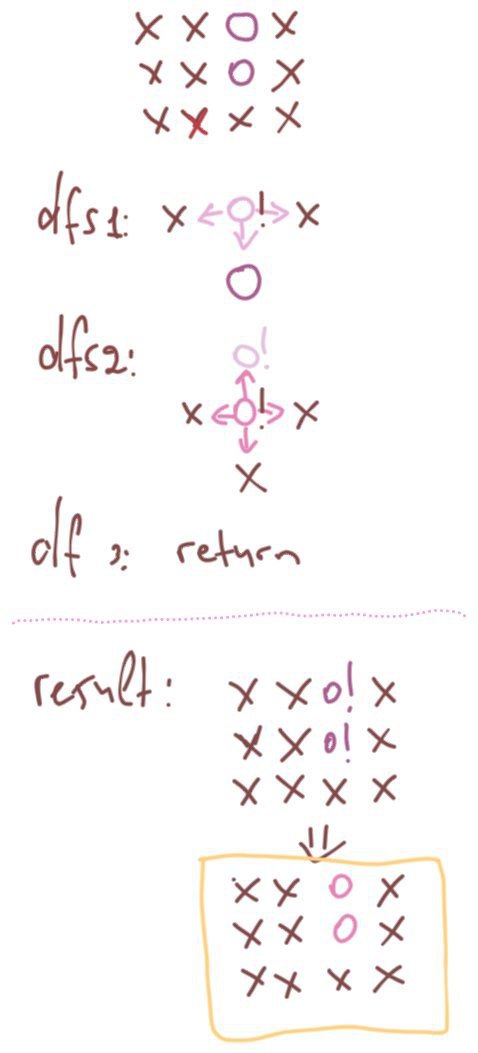 X X O X
X X O X
X X X X
dfs1: X O! X
O
dfs2: O!
X O! X
X
return
result: X X O! X
X X O! X
X X X X
X X O X
X X O X
X X X X